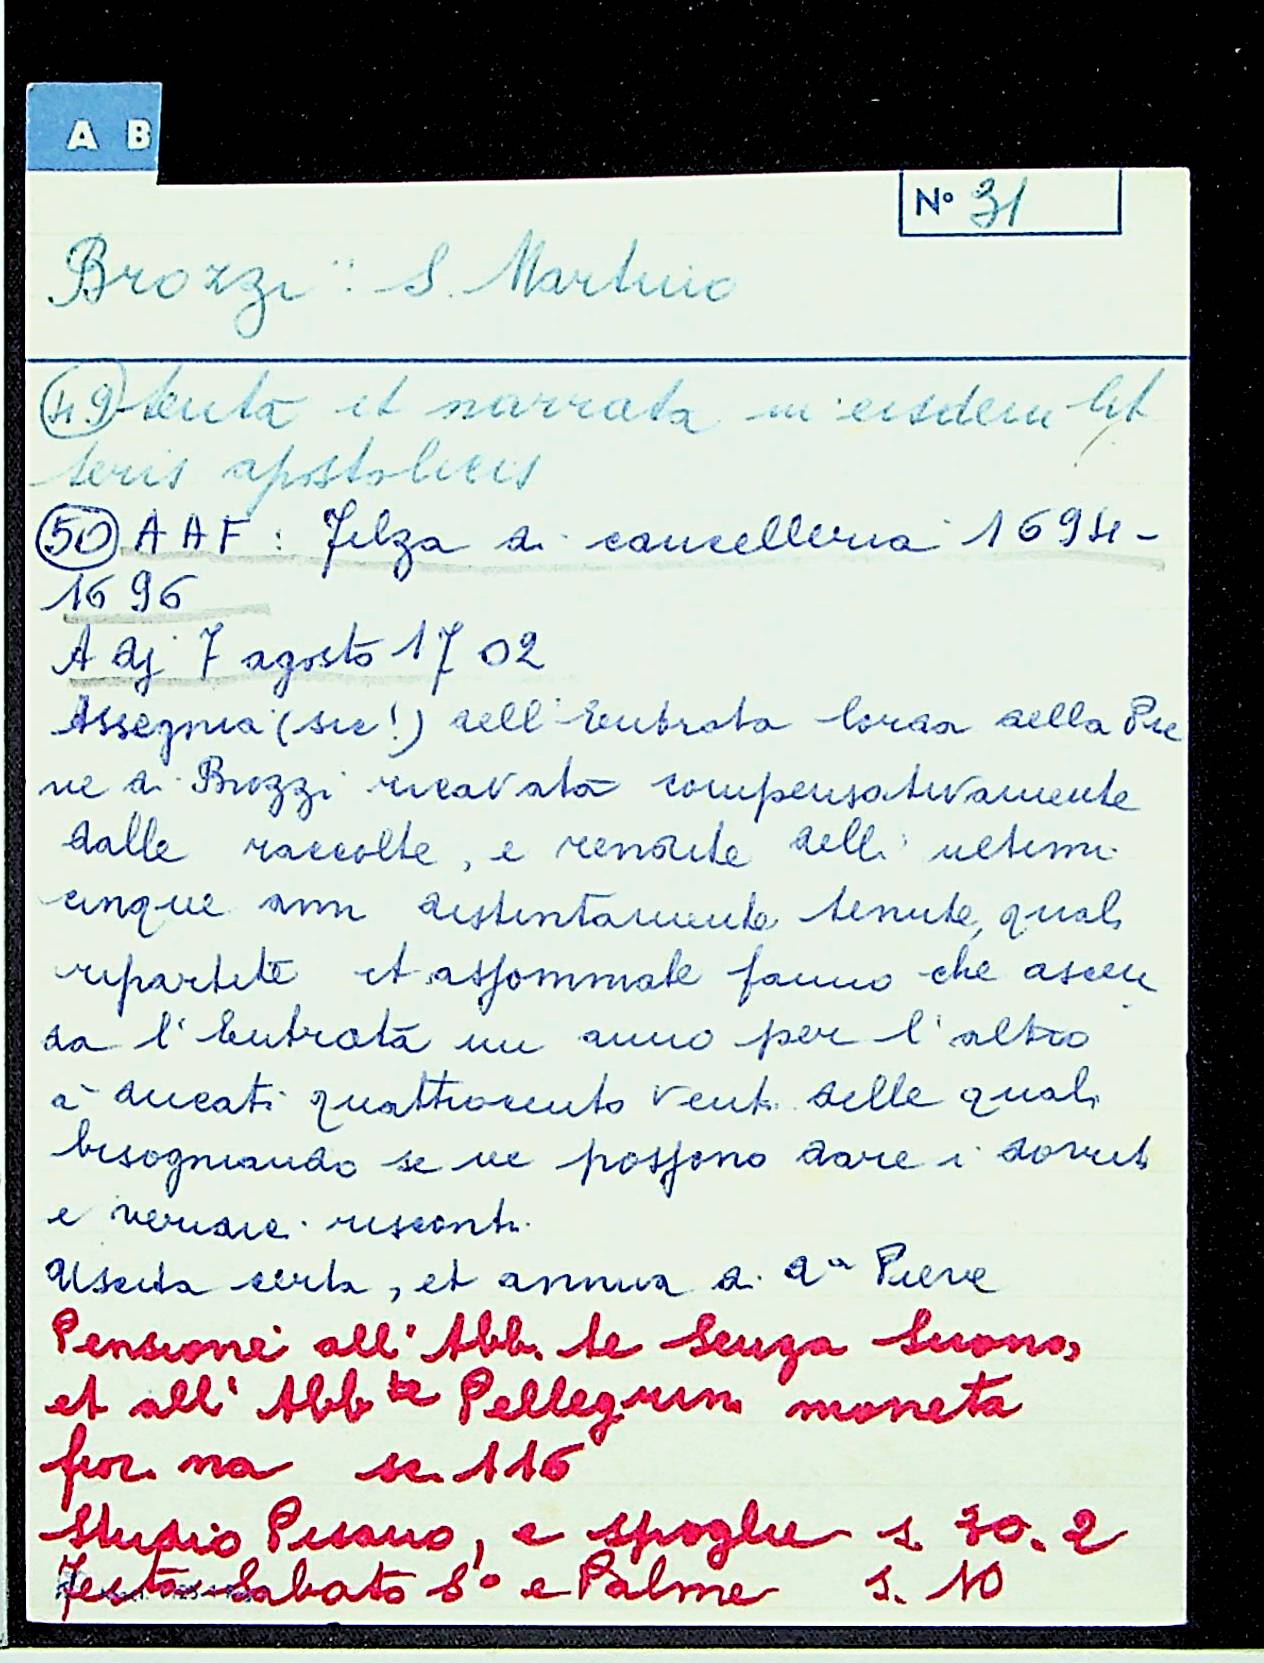 A B
N° 31
Brozzi : S. Martino
(49) tenta et narrata in eisdem lit
teris apostolicis
(50) A A F : Filza di cancelleria 1694-
1696
A dj 7 agosto 1702
Assegnia (sic!) dell'Entrata lorda della Pie
ve di Brozzi ricavata compensativamente
dalle raccolte, e rendite delli ultimi
cinque anni distintamente tenute, quali
ripartite et assommate fanno che ascen
da l'Entrata un anno per l'altro
à ducati quattrocento venti delle quali
bisogniando se ne possono dare i dovuti
e veridici riscontri.
Uscita certa, et annua di da Pieve
Pensione all'Abb. te
et all' Abb te Pellegrini moneta
fior. na sc. 116
Studio Pisano, e spoglie s. 30. 2
Festa Sabato So e Palme s. 10